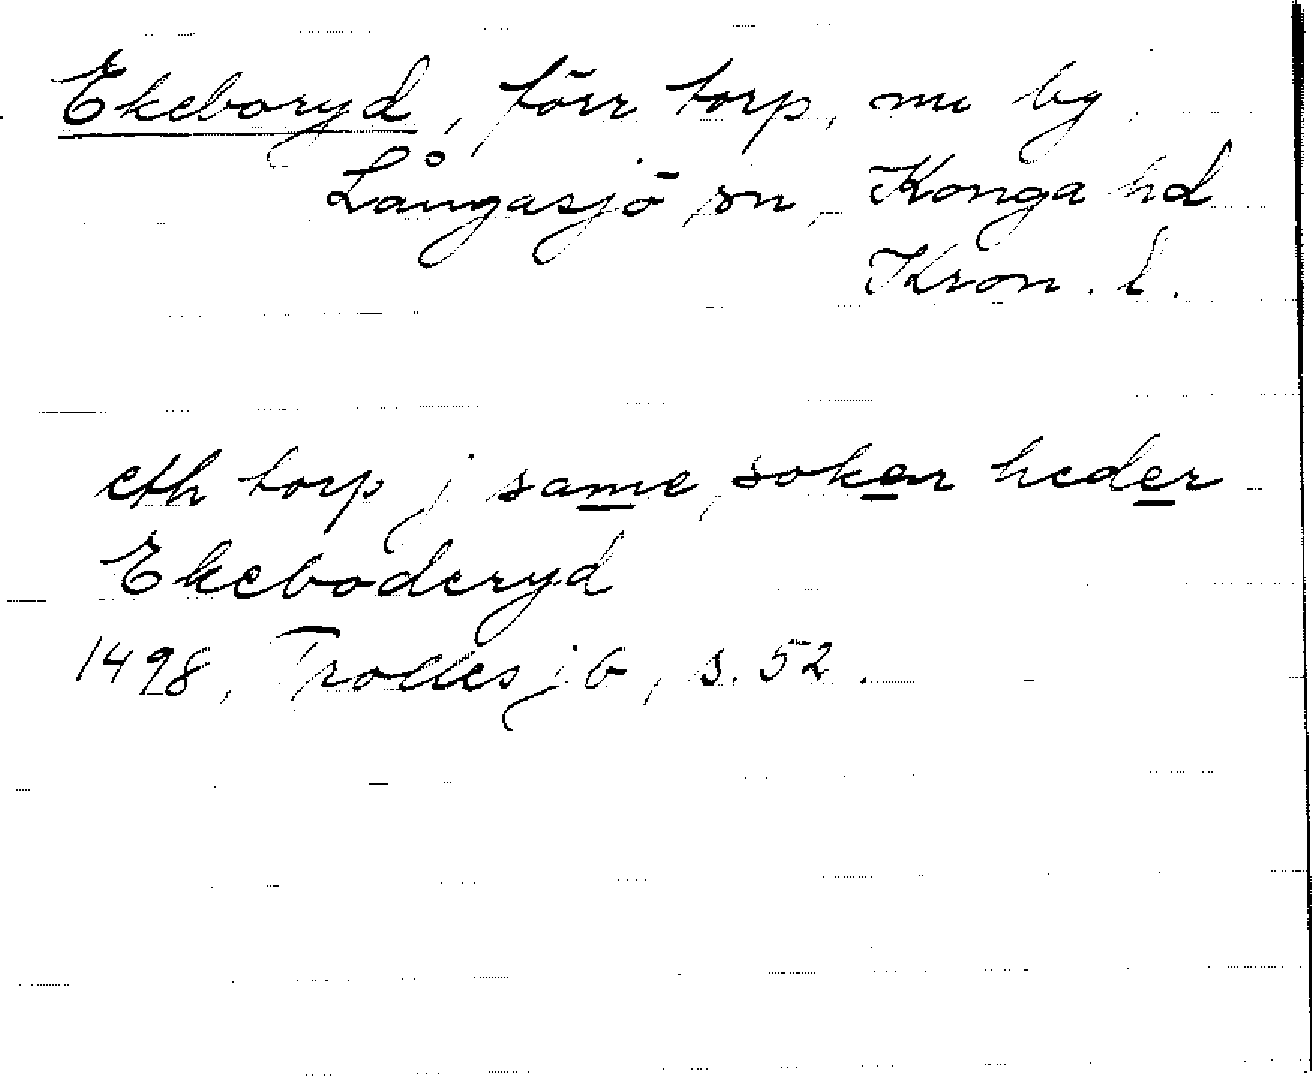 Ekeboryd, förr torp, nu by
Långasjö sn, Konga hd
Kron. l.
eth torp j same soken heder
Ekeboderyd
1498, Trolles jb, s. 52.